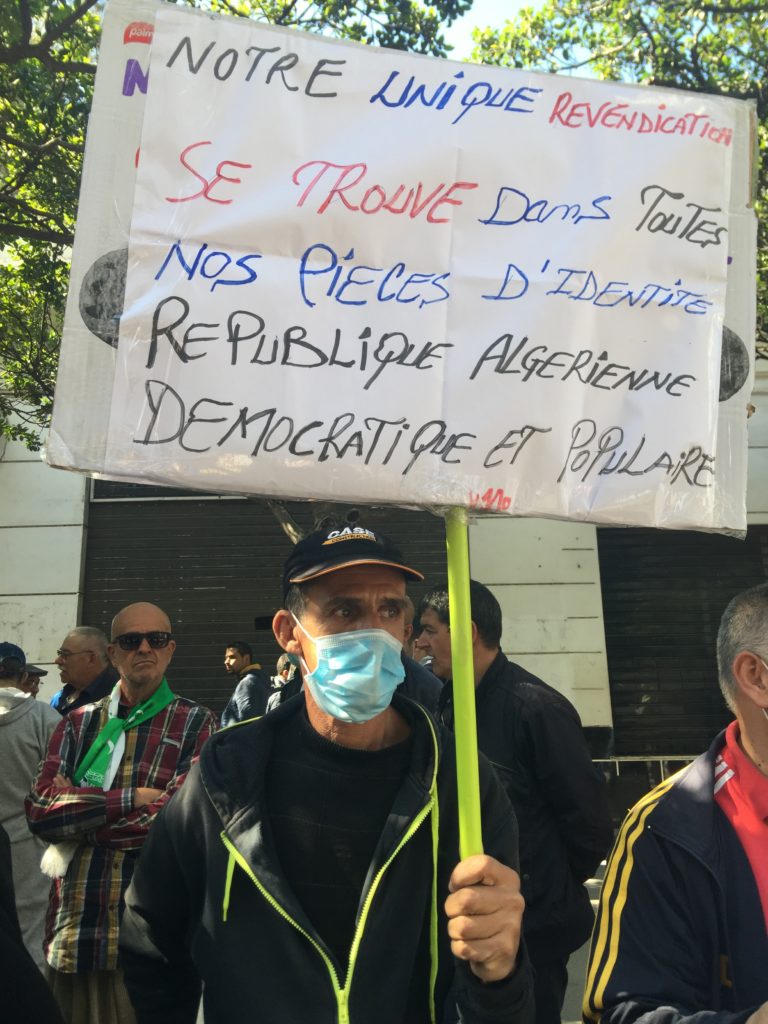 palm
N
NOTRE UNIQUE REVENDICATION
SE TROUVE Dans TOUTES
NOS PIECES D'IDENTITE
REPUBLIQUE ALGERIENNE
DEMOCRATIQUE ET POPULAIRE
CASE
CONSTRUCTION